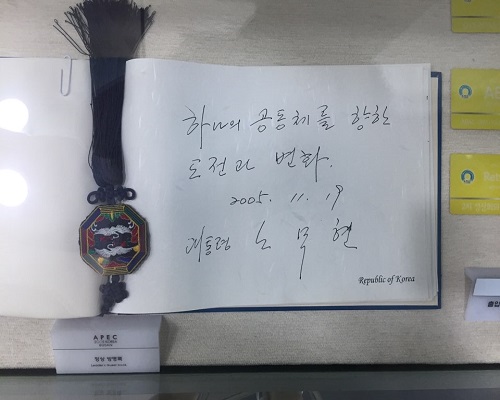 하나의 공동체를 향한
도전과 변화.
2005. 11. 19
대통령 노무현
Republic of Korea
APEC
정상 방명록